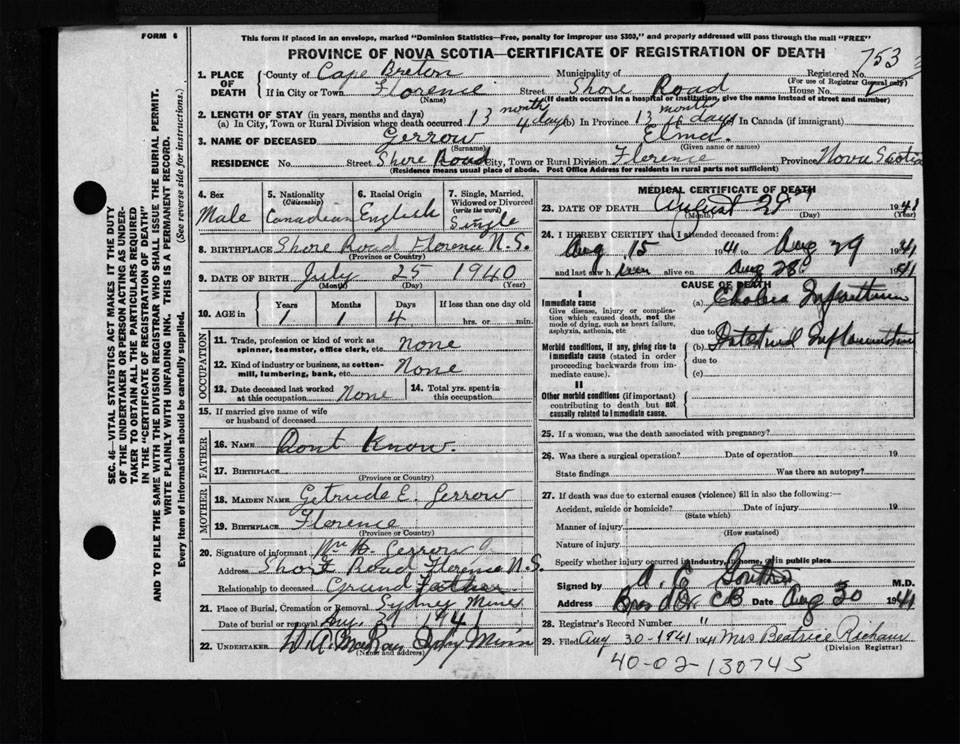 FORM 6
This form if placed in an envelope, marked "Dominion Statistics—Free, penalty for improper use $300," and properly addressed will pass through the mail "FREE"
PROVINCE OF NOVA SCOTIA—CERTIFICATE OF REGISTRATION OF DEATH
753
1. PLACE OF DEATH County of Cape Breton Municipality of Registered No.
(For use of Registrar General only)
If in City or Town Florence Street Shore Road House No.
(Name) (If death occurred in a hospital or institution, give the name instead of street and number)
2. LENGTH OF STAY (in years, months and days)
(a) In City, Town or Rural Division where death occurred 13 month 4 days (b) In Province 13 month 4 days In Canada (if immigrant)
3. NAME OF DECEASED Gerrow Elma.
(Surname) (Given name or names)
RESIDENCE No. Street Shore Road City, Town or Rural Division Florence Province Nova Scotia
(Residence means usual place of abode. Post Office Address for residents in rural parts not sufficient)
4. Sex Male
5. Nationality (Citizenship) Canadian
6. Racial Origin English
7. Single, Married, Widowed or Divorced (write the word) Single
8. BIRTHPLACE Shore Road Florence N.S.
(Province or Country)
9. DATE OF BIRTH July 25 1940
(Month) (Day) (Year)
10. AGE in Years 1 Months 1 Days 4 If less than one day old hrs. or min.
OCCUPATION
11. Trade, profession or kind of work as spinner, teamster, office clerk, etc. none
12. Kind of industry or business, as cotton-mill, lumbering, bank, etc. None
13. Date deceased last worked at this occupation None
14. Total yrs. spent in this occupation
15. If married give name of wife or husband of deceased
FATHER
16. NAME Dont Know.
17. BIRTHPLACE
(Province or Country)
MOTHER
18. MAIDEN NAME Getrude E. Gerrow
19. BIRTHPLACE Florence
(Province or Country)
20. Signature of informant Wm H. Gerrow
Address Shore Road Florence N.S.
Relationship to deceased Grand Father
21. Place of Burial, Cremation or Removal Sydney Mines
Date of burial or removal 1941
22. UNDERTAKER
(Name and address)
MEDICAL CERTIFICATE OF DEATH
23. DATE OF DEATH August 29 1941
(Month) (Day) (Year)
24. I HEREBY CERTIFY that I attended deceased from
Aug 15 1941 to Aug 29 1941
and last saw h alive on Aug 28 1941
CAUSE OF DEATH
I
Immediate cause
Give disease, injury or complication which caused death, not the mode of dying, such as heart failure, asphyxia, asthenia, etc.
(a) Cholera Infantum
due to
Morbid conditions, if any, giving rise to immediate cause (stated in order proceeding backwards from immediate cause).
(b) Intestinal Inflammation
due to
(c)
II
Other morbid conditions (if important) contributing to death but not causally related to immediate cause.
25. If a woman, was the death associated with pregnancy?
26. Was there a surgical operation? Date of operation 19
State findings Was there an autopsy?
27. If death was due to external causes (violence) fill in also the following:—
Accident, suicide or homicide? Date of injury 19
(State which)
Manner of injury
(How sustained)
Nature of injury
Specify whether injury occurred in industry, in home, or in public place
Signed by M.D.
Address Date Aug 30 1941
28. Registrar's Record Number "
29. Filed Aug 30-1941 Mrs Beatrice
(Division Registrar)
40-02-130745
SEC. 46—VITAL STATISTICS ACT MAKES IT THE DUTY
OF THE UNDERTAKER OR PERSON ACTING AS UNDERTAKER
TO OBTAIN ALL THE PARTICULARS REQUIRED
IN THE "CERTIFICATE OF REGISTRATION OF DEATH"
AND TO FILE THE SAME WITH THE DIVISION REGISTRAR WHO SHALL ISSUE THE BURIAL PERMIT.
WRITE PLAINLY WITH UNFADING INK. THIS IS A PERMANENT RECORD.
Every item of information should be carefully supplied. (See reverse side for instructions.)